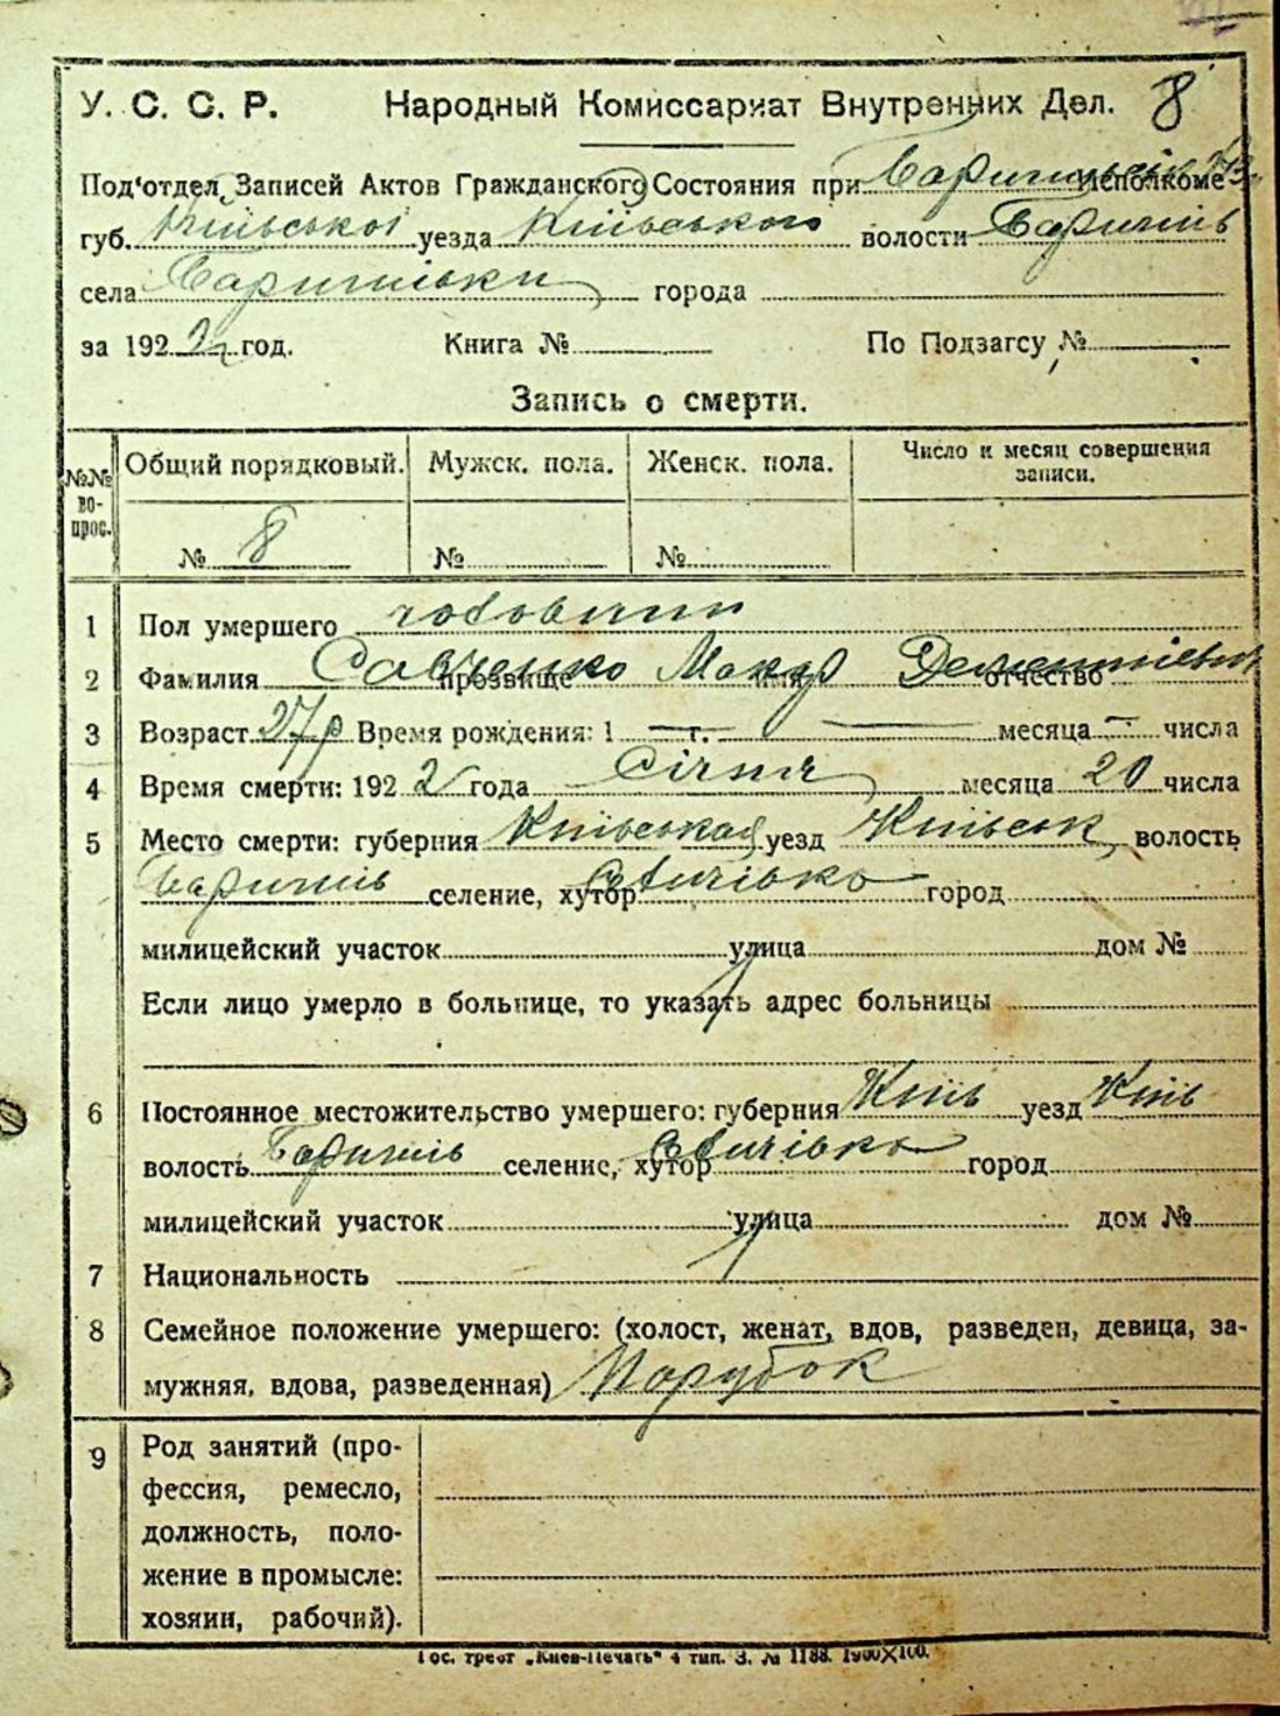 8
У. С. С. Р. Народный Комиссариат Внутренних Дел.
Под'отдел Записей Актов Гражданского Состояния при Исполкоме
губ. Київської уезда Київського волости Баришів
села Баришівки города
за 1922 год. Книга № По Подзагсу №
Запись о смерти.
№№ вопрос. Общий порядковый. Мужск. пола. Женск. пола. Число и месяц совершения записи.
№ 8 № №
1 Пол умершего чоловичи
2 Фамилия Савченко прозвище Макар имя Дементіевич отчество
3 Возраст 27 р Время рождения: 1 — г. — месяца — числа
4 Время смерти: 1922 года Січня месяца 20 числа
5 Место смерти: губерния Київская уезд Київськ волость
Баришів селение, хутор город
милицейский участок улица дом №
Если лицо умерло в больнице, то указать адрес больницы
6 Постоянное местожительство умершего: губерния Київ уезд Київ
волость Баришів селение, хутор город
милицейский участок улица дом №
7 Национальность
8 Семейное положение умершего: (холост, женат, вдов, разведен, девица, за-
мужняя, вдова, разведенная) Парубок
9 Род занятий (про-
фессия, ремесло,
должность, поло-
жение в промысле:
хозяин, рабочий).
Гос. трест „Киев-Печать" 4 тип. З. № 1188. 1900×100.